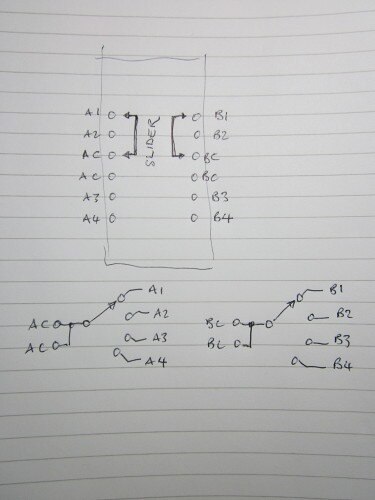 A1 B1
A2 SLIDER B2
AC BC
AC BC
A3 B3
A4 B4
A1 B1
AC A2 BC B2
AC A3 BC B3
A4 B4